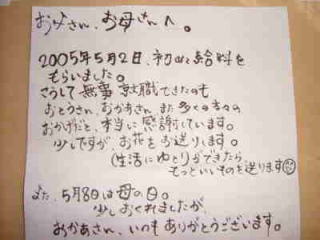 お父さん、お母さんへ。
2005年5月2日、初めて給料を
もらいました。
こうして無事就職できたのも
おとうさん、おかあさん、また多くの方々の
おかげだと、本当に感謝しています。
少しですが、お花をお送りします。
(生活にゆとりができたら、
もっといいものを送ります
また、5月8日は母の日。
少しおくれましたが
おかあさん、いつもありがとうございます。